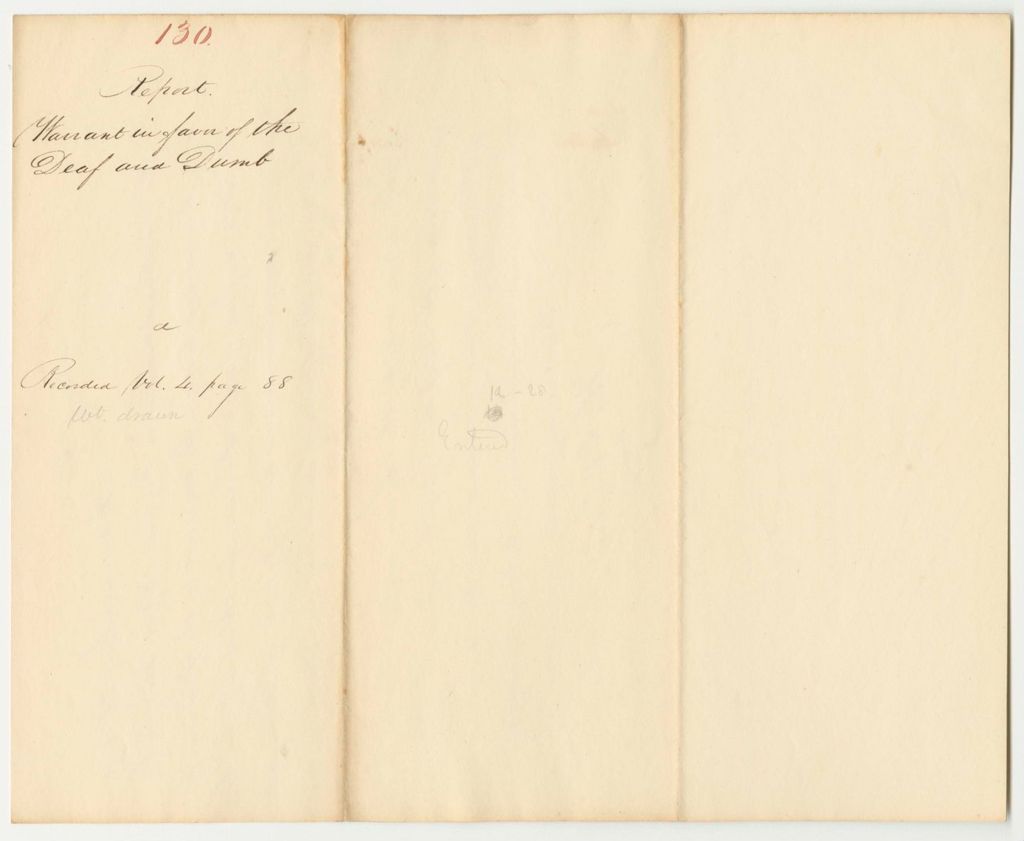 130.
Report.
Warrant in favor of the
Deaf and Dumb
a
Recorded Vol. 4. page 88
Wt. drawn
Entered